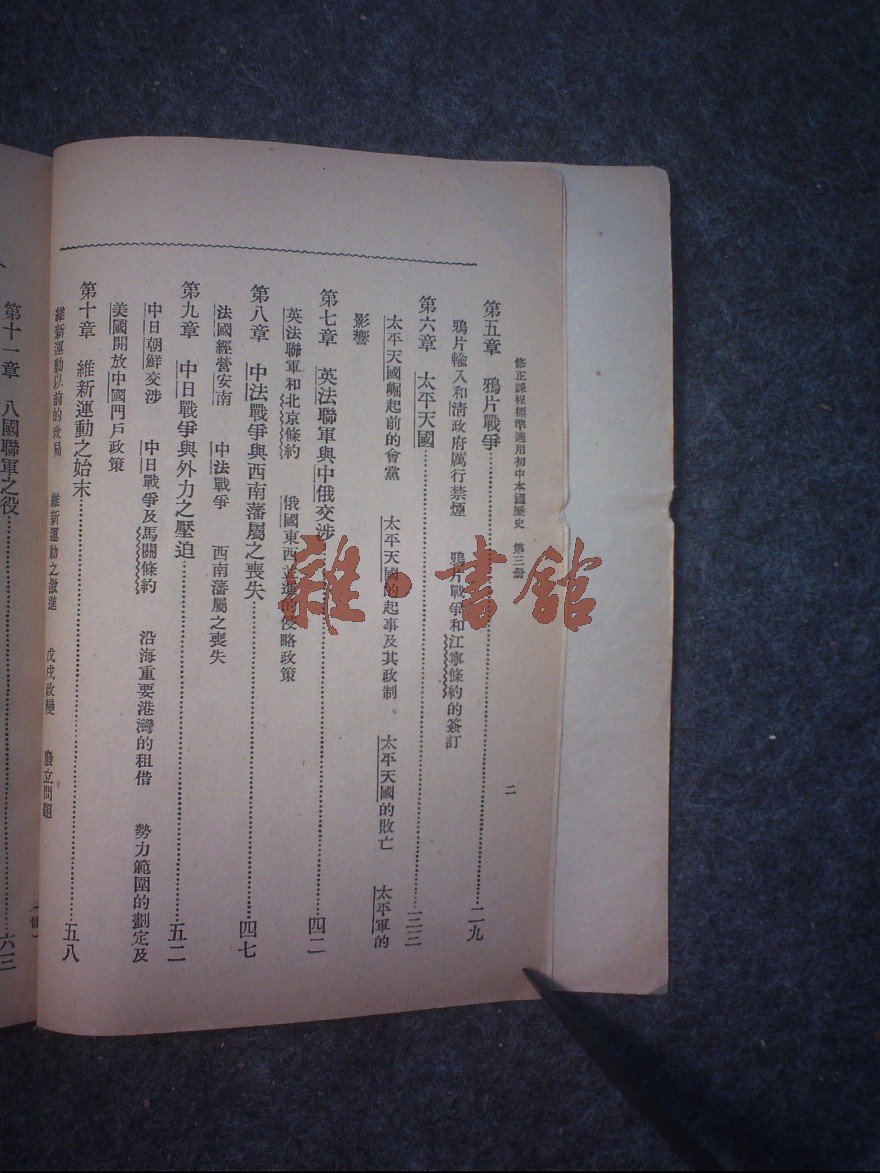 修正課程標準適用初中本國歷史 第三册
二
第五章 鴉片戰爭……二九
鴉片輸入和清政府厲行禁煙 鴉片戰爭和江寧條約的簽訂
第六章 太平天國……三三
太平天國崛起前的會黨 太平天國的起事及其政制 太平天國的敗亡 太平軍的
影響
第七章 英法聯軍與中俄交涉……四二
英法聯軍和北京條約 俄國東西並進的侵略政策
第八章 中法戰爭與西南藩屬之喪失……四七
法國經營安南 中法戰爭 西南藩屬之喪失
第九章 中日戰爭與外力之壓迫……五二
中日朝鮮交涉 中日戰爭及馬關條約 沿海重要港灣的租借 勢力範圍的劃定及
美國開放中國門戶政策
第十章 維新運動之始末……五八
維新運動以前的政局 維新運動之激進 戊戌政變 廢立問題
第十一章 八國聯軍之役……六三
雜·書館